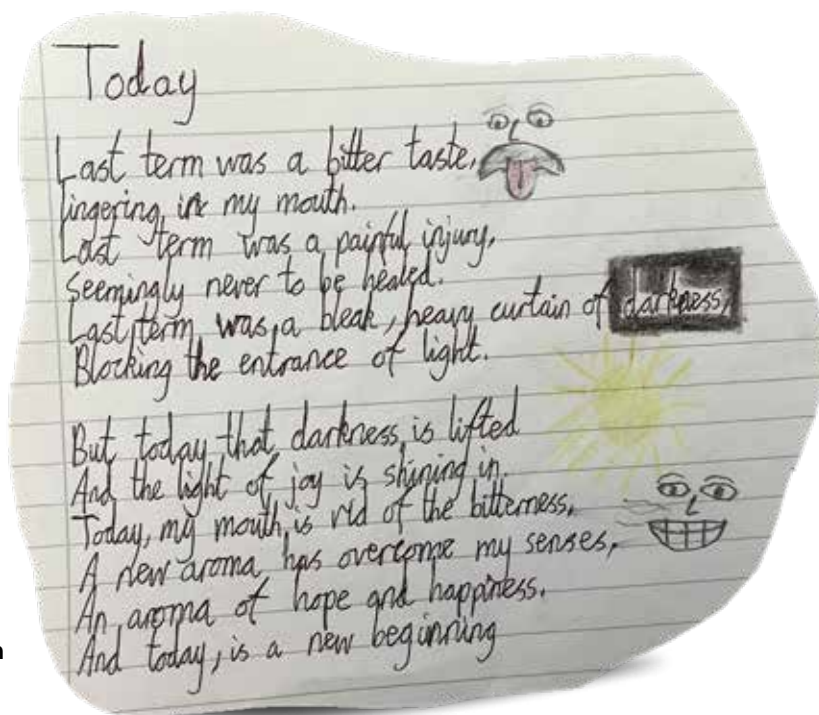 Today
Last term was a bitter taste,
lingering in my mouth.
Last term was a painful injury,
Seemingly never to be healed.
Last term was a bleak, heavy curtain of darkness,
Blocking the entrance of light.
But today that darkness is lifted
And the light of joy is shining in.
Today, my mouth is rid of the bitterness,
A new aroma has overcome my senses,
An aroma of hope and happiness.
And today, is a new beginning